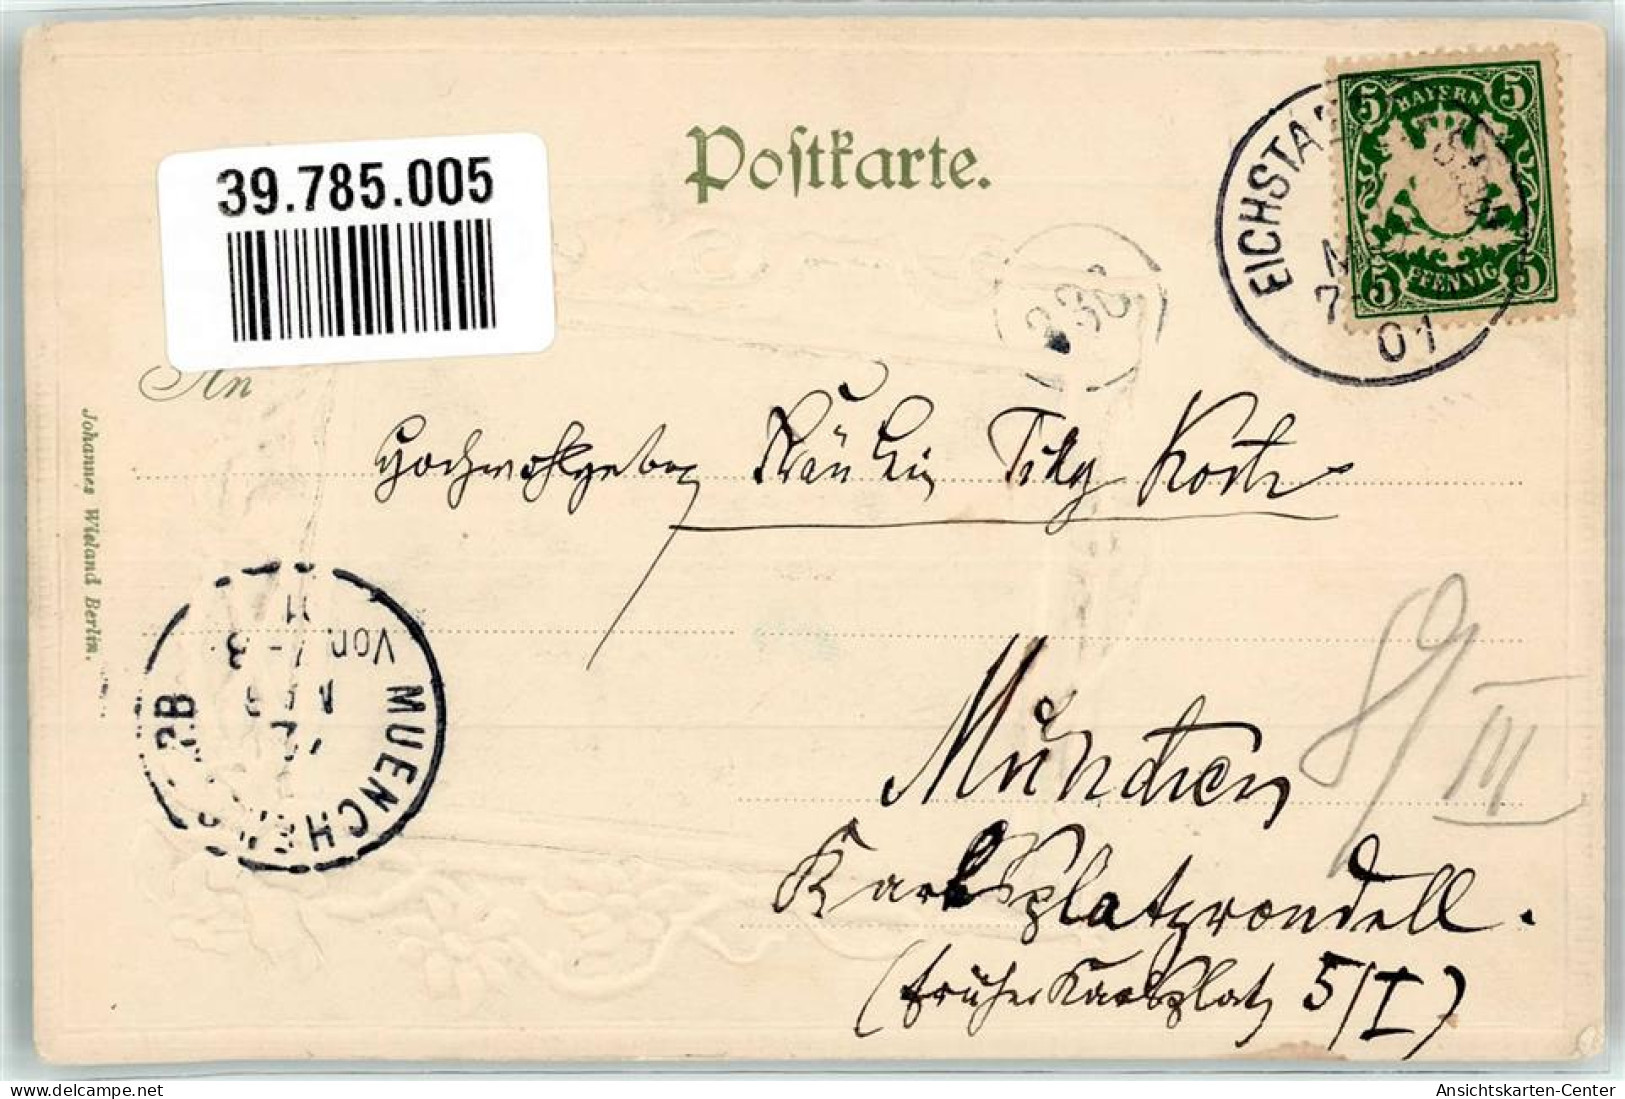 39.785.005
Postkarte.
5 BAYERN 5
5 PFENNIG 5
EICHSTA
7
01
An
Johannes Wieland Berlin.
Hochwohlgeboren Fräulein
MUENCHEN
Vor
München
Karlsplatzrondell.
(früher Karlsplatz 5/I)
III
akpool.de
Ansichtskarten-Center